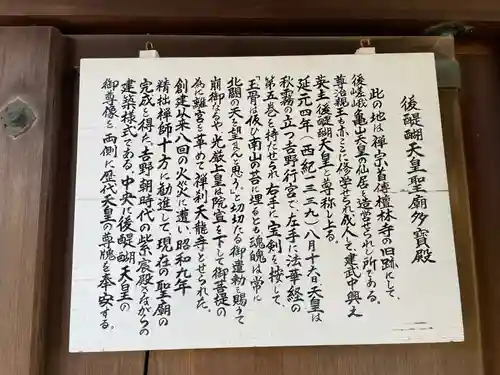 後醍醐天皇聖廟多寶殿
此の地は禅宗首傳檀林寺の旧跡にして、
後嵯峨亀山天皇の仙居を造営せられし所である。
尊治親王も亦ここに修学せられ成人して、建武中興之
英主後醍醐天皇と尊称し上る。
延元四年(西紀一三三九)八月十六日、天皇は
秋霧の立つ吉野行宮で、左手に法華経の
第五巻を持たせられ右手に宝剣を按じて、
「玉骨は仮ひ南山の苔に埋るとも魂魄は常に
北闕の天を望まんと思う。」と切切たる御遺勅を賜うて
崩御なるや光厳上皇は院宣を下して御菩提の
為に離宮を革めて禅刹天龍寺とせられた。
創建以来八回の火災に遭い、昭和九年
精拙禅師十方に勧進して、現在の聖廟の
完成を得た。吉野朝時代の紫宸殿さながらの
建築様式である。中央に後醍醐天皇の
御尊像と両側に歴代天皇の尊牌を奉安する。